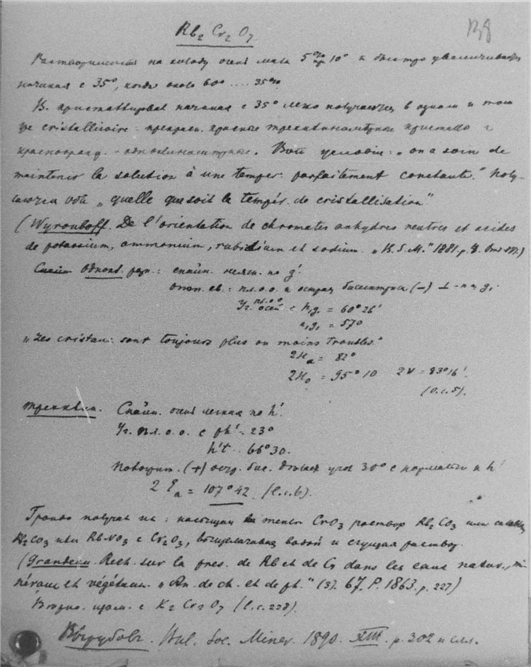 Rb₂ Cr₂ O₇
Растворимость на холоду очень мала 5% при 10° и быстро увеличивается
начиная с 35°, когда около 60° .... 35%
В. кристаллизовал начиная с 35° легко получаются в одном и том
же cristallisoire: красные триклинические кристаллы и
одноклинические. Вот условие: „on a soin de
maintenir la solution à une tempér. parfaitement constante." Полу-
чаются оба „quelle que soit la tempér. de cristallisation"
(Wyrouboff. De l'orientation de chromates anhydres neutres et acides
de potassium, ammonium, rubidium et sodium. „B. S. M." 1881, p.
Спайн. одноклин. разн.: спайн. неясн. по g'.
опт. св.: пл. о. о. и острая биссектриса (–) ⊥
Уг. пл. о. о. с h₁g₁ = 60° 26'
= 57°
„Les cristaux: sont toujours plus ou moins troubles."
2Hₐ = 82°
2H₀ = 95° 10 2V = 83° 16'
(l.c.5).
триклин. Спайн. очень легкая по h'.
Уг. пл. о. о. с ph' – 23°
h't . 66° 30.
(+) остр. бис. делает угол 30° с нормалью к h'
2 Eₐ = 107° 42. (l.c.6).
Грандо получал их: насыщая CrO₃ раствор Rb₂ CO₃ или
Rb₂CO₃ или RbNO₃ с Cr₂O₃, выщелачивая водой и сгущая раствор.
(Grandeau. Rech. sur la pres. de Rb et de Cs dans les eaux natur., mi-
néraux et végétaux. „An. de ch. et de ph." (3). 67. P. 1863. p. 227)
с K₂ Cr₂ O₇ (l. c. 228).
Вырубовъ. Bul. Soc. Miner. 1890. XIII. p. 302 и сл.